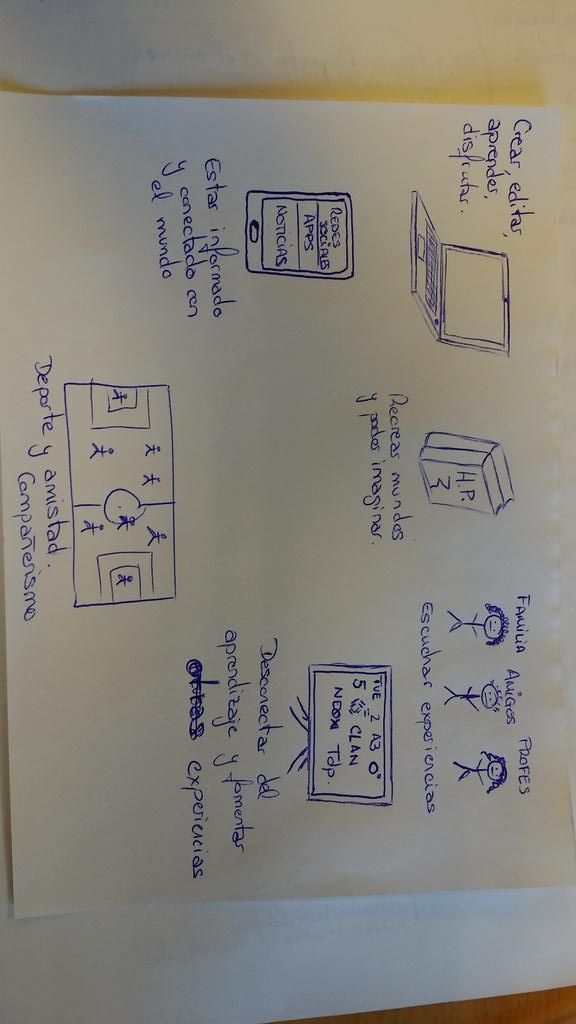 Crear, editar,
aprender,
disfrutar.
H.P.
3
Recrear mundos
y poder imaginar.
FAMILIA AMIGOS PROFES
Escuchar experiencias
REDES
SOCIALES
APPS
NOTICIAS
Estar informado
y conectado con
el mundo
TVE 2 A3
5 CLAN
NEOX Tdp.
Desconectar del
aprendizaje y fomentar
experiencias
Deporte y amistad.
Compañerismo